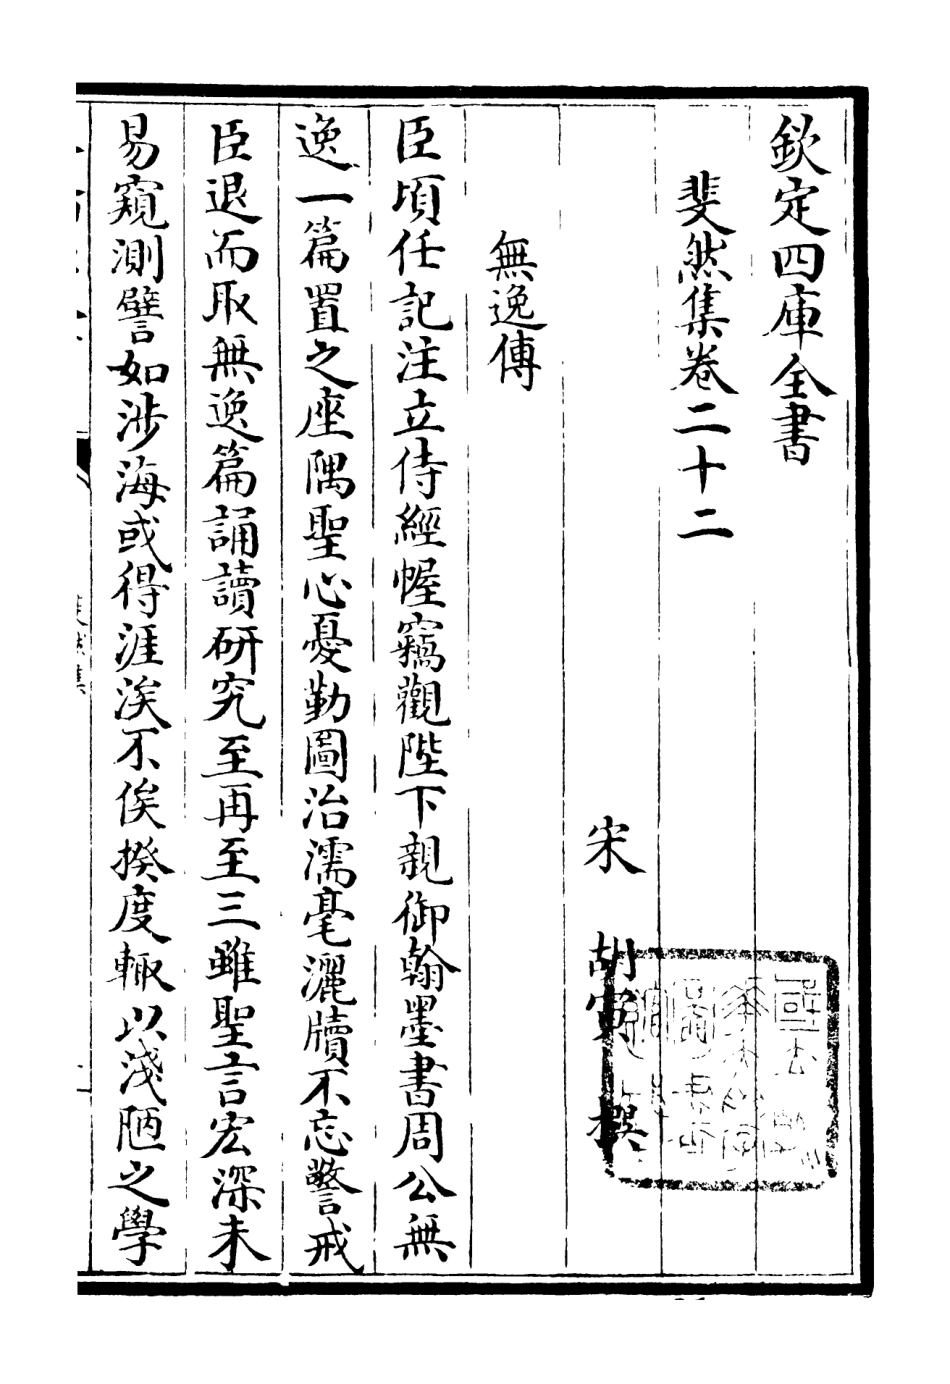 欽定四庫全書
斐然集卷二十二
宋 胡寅 撰
無逸傳
臣頃任記注立侍經幄竊觀陛下親御翰墨書周公無
逸一篇置之座隅聖心憂勤圖治濡毫灑牘不忘警戒
臣退而取無逸篇誦讀研究至再至三雖聖言宏深未
易窺測譬如涉海或得涯涘不俟揆度輙以淺陋之學